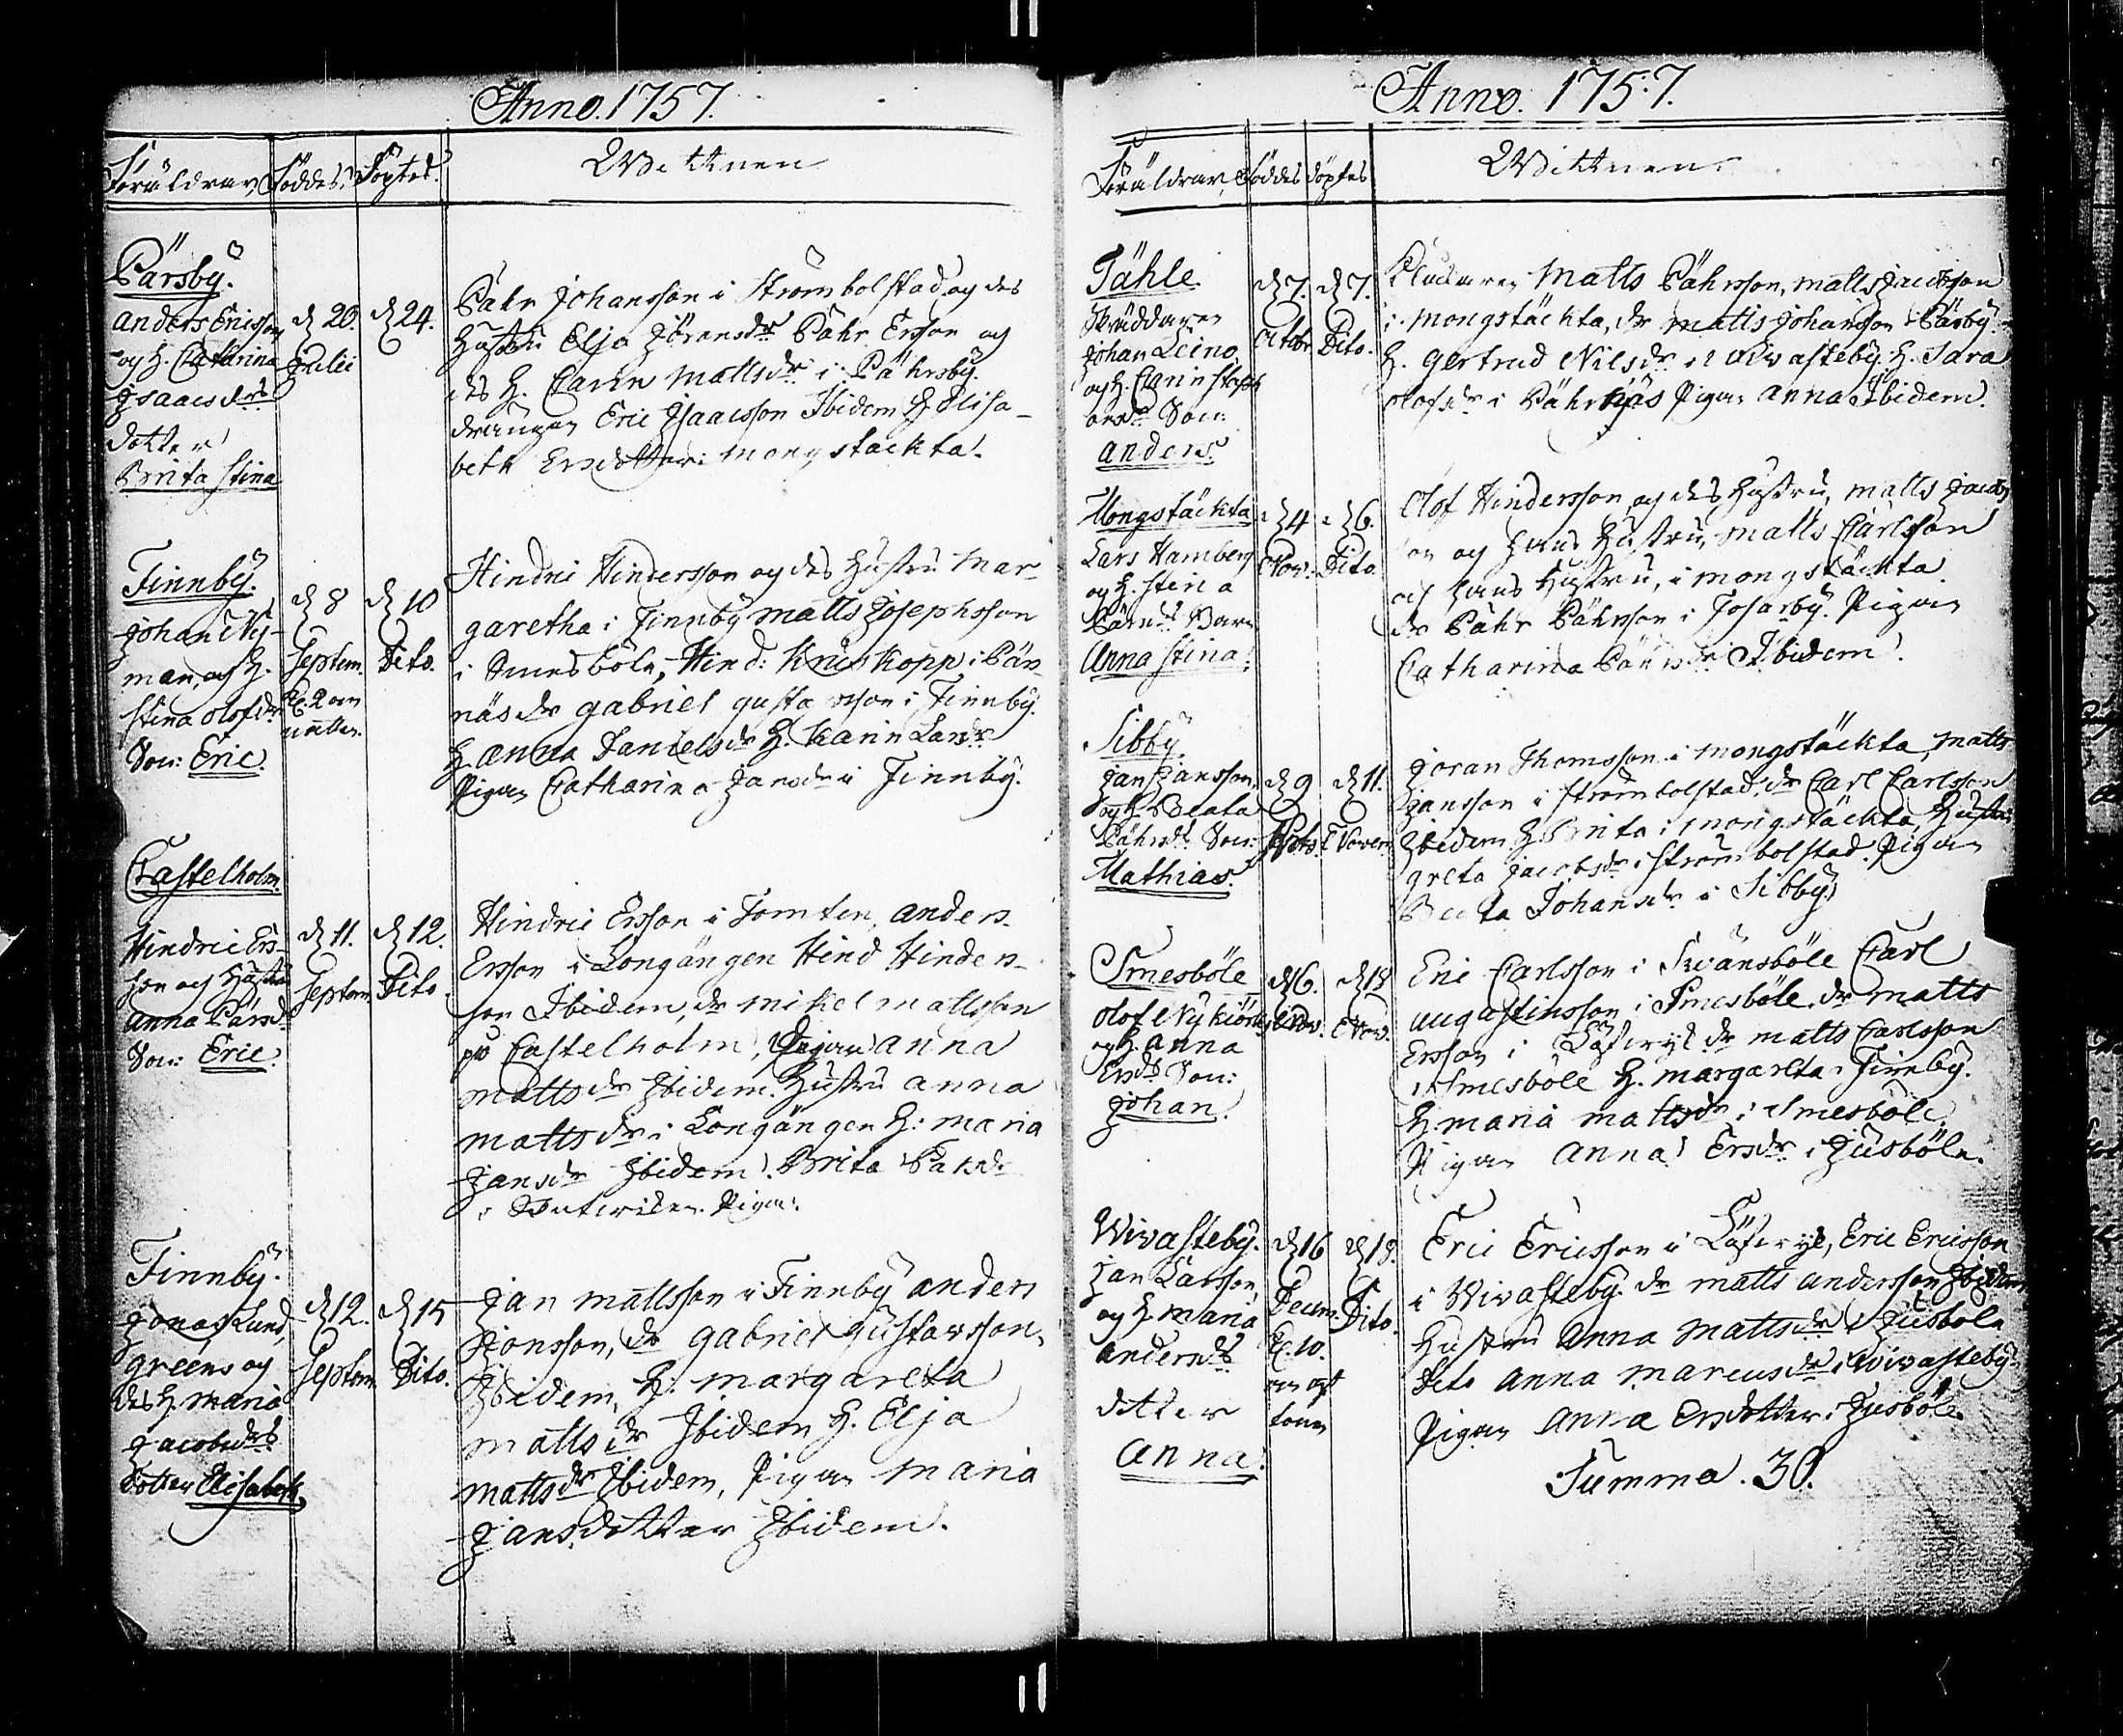 Anno. 1757.
Föräldrar, Föddes, Döptes. Wittnen
Pärsby.
anders Ericsson
og H. Catharina
Isaacs drs
dotter
Brita Stina
d 20. Julii
d 24.
Pähr Johansson i Strömbolstad, og des
Hustru Elja Jöransdr Pähr Ersson og
des H. Carin Mattsdr i Pährsby.
drängen Eric Isaacsson Ibidem H Elisa-
beth Ersdotter i mongstäckta.
Finnby.
Johan Ny-
man, og H.
Stina Olofsdr
Son: Eric.
d 8
Septem.
d 10
Dito.
Hindric Hindersson og des Hustru Mar-
garetha i Finnby Matts Josephsson
i Smesböle, Hind: Kruskopp i Pär-
näs dr gabriel gustavsson i Finnby.
H. Anna Danielsdr H. Karin Larsdr
Pigan Catharina Jansdr i Finnby.
Castelholm.
Hindric Ers-
son og Hustru
Anna Pärsdr
Son: Eric.
d 11.
Septem
d 12.
Dito.
Hindric Ersson i Tomten, anders
Ersson i Longängen Hind Hinders-
son Ibidem, dr mikel mattsson
på Castelholm, Pigan anna
mattsdr Ibidem. Hustru anna
mattsdr i Longängen H: maria
Jansdr Ibidem. Brita Pärsdr
Pigan.
Finnby.
Jonas Lund,
greens og
des H. Maria
Jacobsdrs
dotter Elisabeth.
d 12.
Septem
d 15
Dito.
Jan mattsson i Finnby anders
Jonsson, dr gabriel gustavsson,
Ibidem, H. margareta
mattsdr Ibidem H. Elja
mattsdr Ibidem, Pigan Maria
Jansdotter Ibidem.
Anno. 1757.
Föräldrar, Föddes döptes Wittnen.
Tähle
Skräddaren
Johan Leino,
og H. Carin
Son:
anders.
d 7.
Octobr
d 7.
Dito.
Matts Pährsson, matts Jacobsson
i mongstäckta, dr matts Johansson i Pärsby
H. gertrud Nilsdr i Wivasteby. H. Sara
olofsdr i Pährnäs Pigan anna Ibidem.
Mongstäckta
Lars Hamberg
og H. Stena
Pärsdr Barn
Anna Stina.
d 4
Nov:
d 6.
Dito
Olof Hindersson, og des Hustru, matts Jacobs
son og hans Hustru, matts Carlsson
og hans Hustru, i mongstäckta.
dr Pähr Pährsson i Tosarby. Pigan
Catharina Pärsdr Ibidem.
Sibby.
Jan Jansson
og H. Beata
Pährsdr Son:
Mathias.
d 9
d 11.
Novem
Jöran Thomsson i mongstäckta, matts
Jansson i Strömbolstad, dr Carl Carlsson
Ibidem H. Brita i mongstäckta, Hustru
greta Jacobsdr i Strömbolstad. Pigan
Beata Johansdr i Sibby.
Smesböle
Olof Nykiörk
og H. Anna
Ersdr Son:
Johan.
d 16.
Nov.
d 18
Nov.
Eric Carlsson i Svänsböle Carl
augustinsson i Smesböle. dr matts
Ersson i dr matts Carlsson
i Smesböle H. margareta i Finnby.
H maria mattsdr i Smesböle.
Pigan Anna Ersdr i Jusböle.
Wivasteby.
Jan Larsson,
og H. Maria
andersdr
dotter
Anna.
d 16
Decem.
d 18.
Dito.
Eric Ericsson i Eric Ericsson
i Wivasteby. dr matts andersson Ibidem
Hustru Anna Mattsdr i Jusböle
Dito Anna Marcusdr i Wivasteby
Pigan Anna Ersdotter i Jusböle.
Summa. 30.